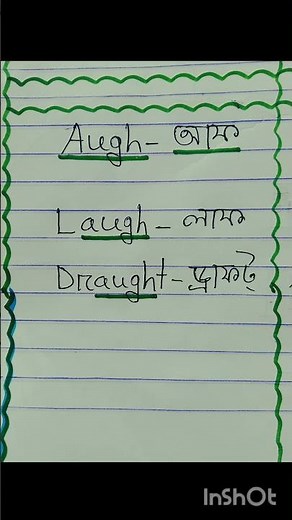 Augh - আফ
Laugh - লাফ
Draught - ড্রাফট্
InShOt